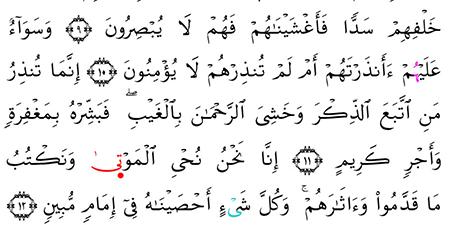 خَلْفِهِمْ سَدًّا فَأَغْشَيْنَٰهُمْ فَهُمْ لَا يُبْصِرُونَ ۝٩ وَسَوَآءٌ
عَلَيْهِمْ ءَأَنذَرْتَهُمْ أَمْ لَمْ تُنذِرْهُمْ لَا يُؤْمِنُونَ ۝١٠ إِنَّمَا تُنذِرُ
مَنِ ٱتَّبَعَ ٱلذِّكْرَ وَخَشِىَ ٱلرَّحْمَٰنَ بِٱلْغَيْبِ ۖ فَبَشِّرْهُ بِمَغْفِرَةٍ
وَأَجْرٍ كَرِيمٍ ۝١١ إِنَّا نَحْنُ نُحْىِ ٱلْمَوْتَىٰ وَنَكْتُبُ
مَا قَدَّمُوا۟ وَءَاثَٰرَهُمْ ۚ وَكُلَّ شَىْءٍ أَحْصَيْنَٰهُ فِىٓ إِمَامٍ مُّبِينٍ ۝١٢